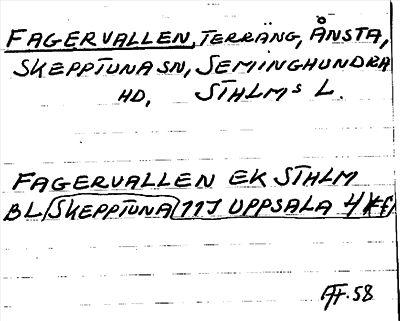 FAGERVALLEN, TERRÄNG, ÅNSTA,
SKEPPTUNA SN, SEMINGHUNDRA
HD, STHLMS L.
FAGERVALLEN EK STHLM
BL SKEPPTUNA 11J UPPSALA 4 Kf
AF. 58